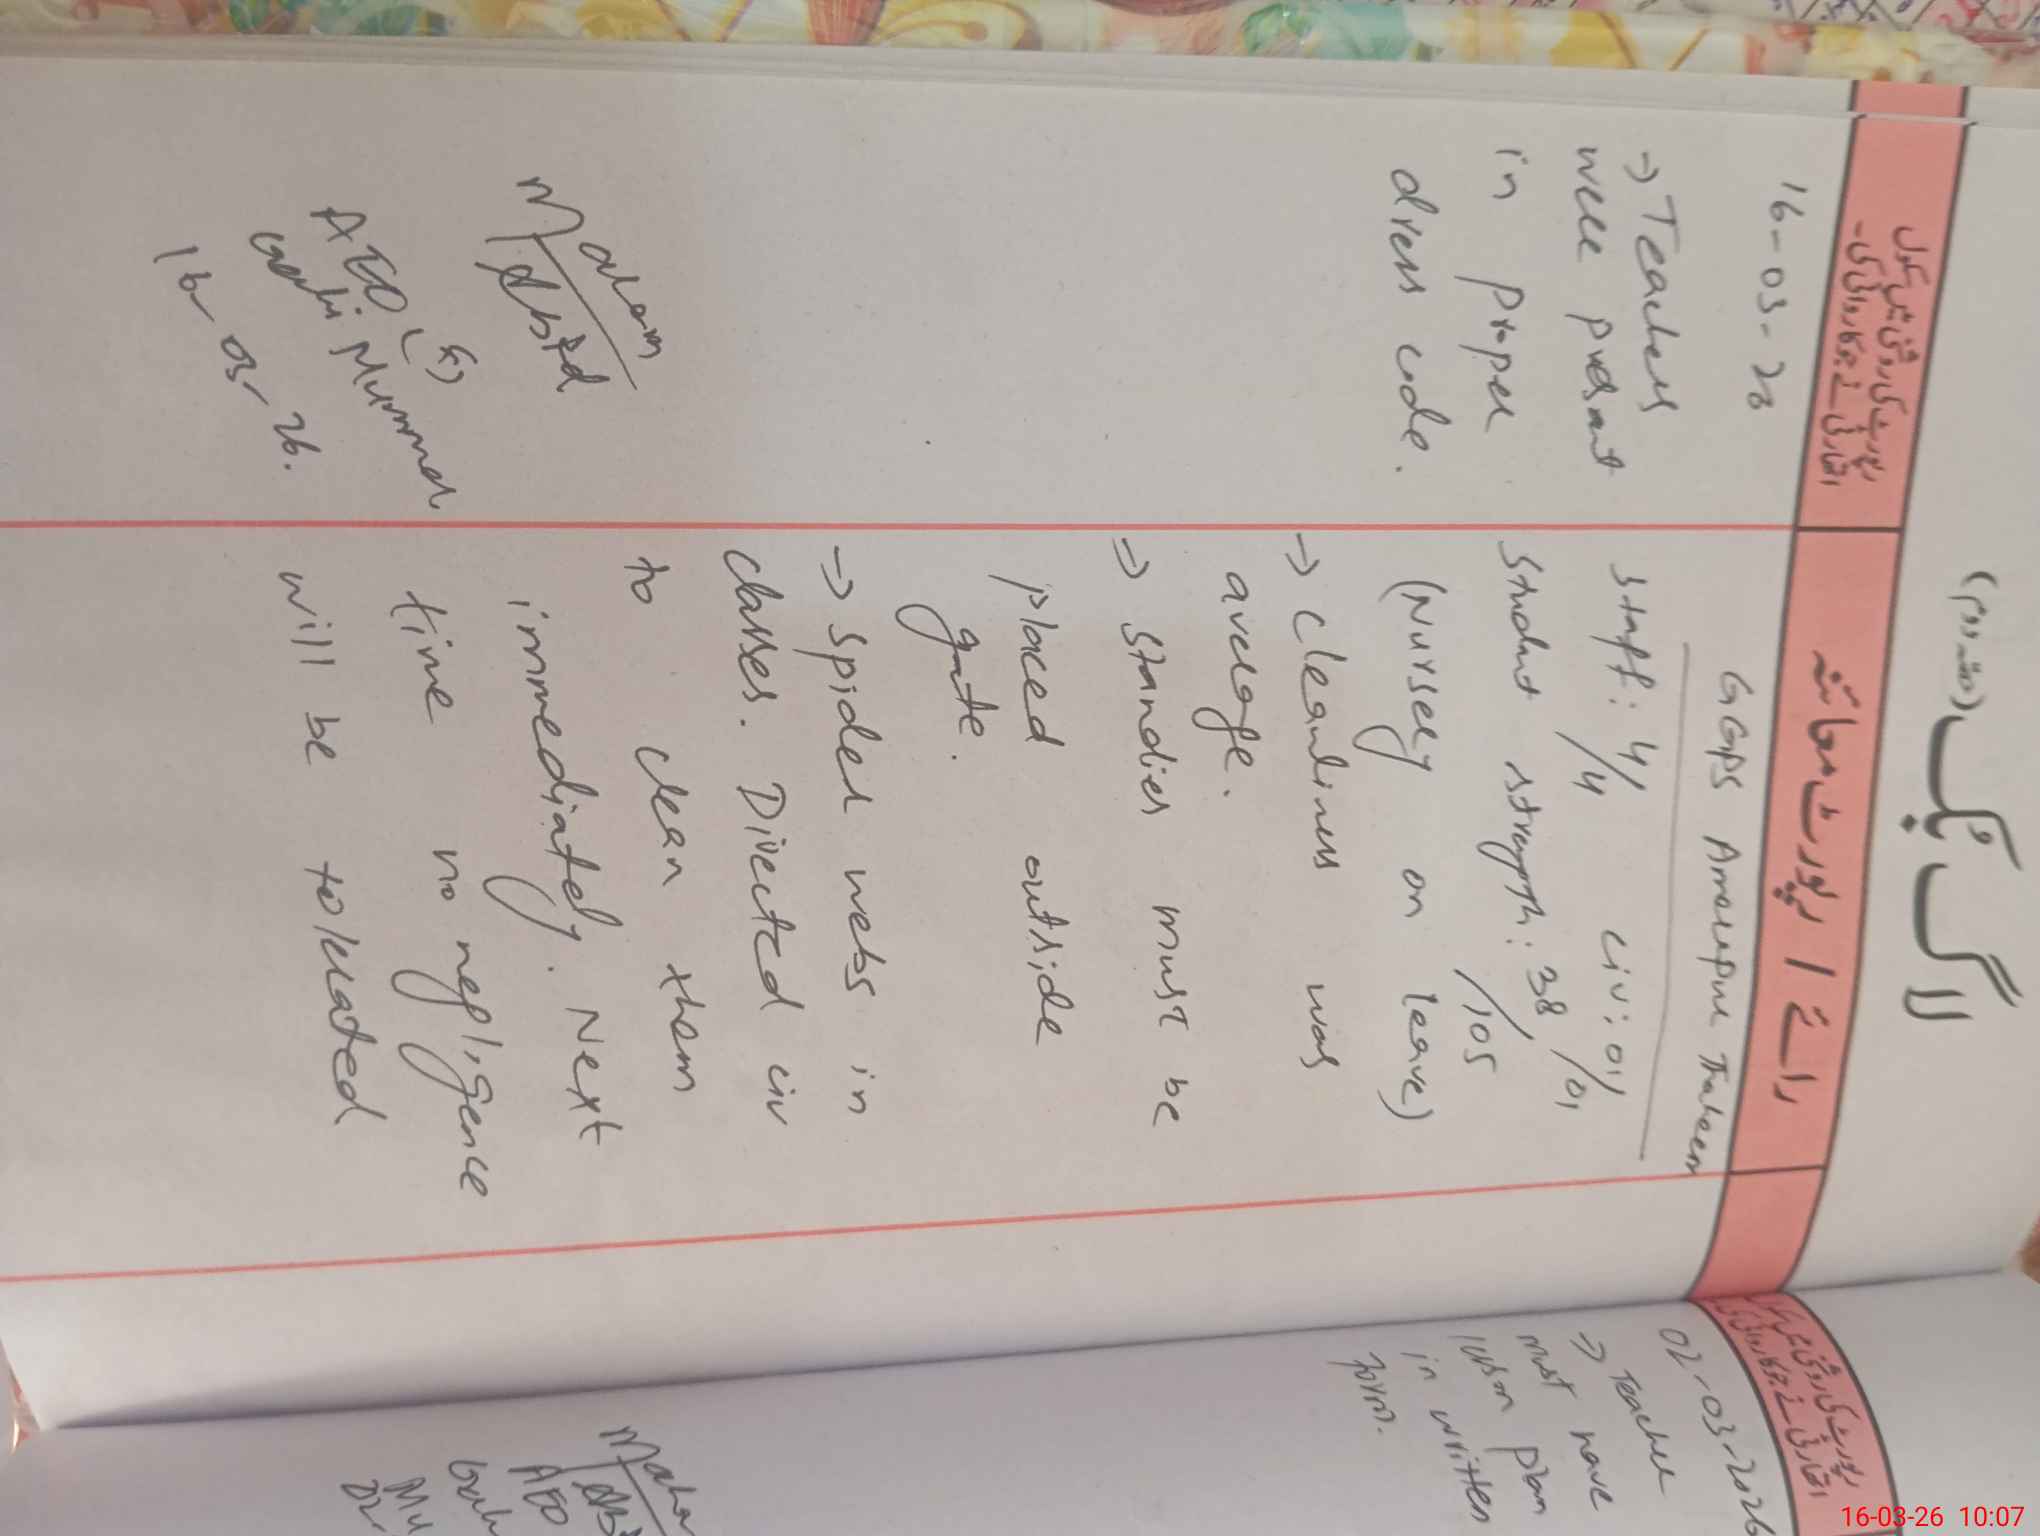 لاگ بک (حصہ دوم)
رائے / رپورٹ معائنہ
GGPS Ameerpur Thaheem
Staff: 4/4 civ: 01/01
Student strength: 38/105
(Nursery on leave)
→ Cleanliness was
average.
→ Standies must be
placed outside
gate.
→ Spider webs in
classes. Directed civ
to clean them
immediately. Next
time no negligence
will be tolerated
رپورٹ کی روشنی میں سکول
اتھارٹی نے جو کارروائی کی۔
16-03-26
→ Teachers
were present
in proper
dress code.
Maham
Abid
AEO (F)
16-03-26.
02-03-2026
→ Teacher
must have
lesson plan
in written
form.
AEO
16-03-26 10:07